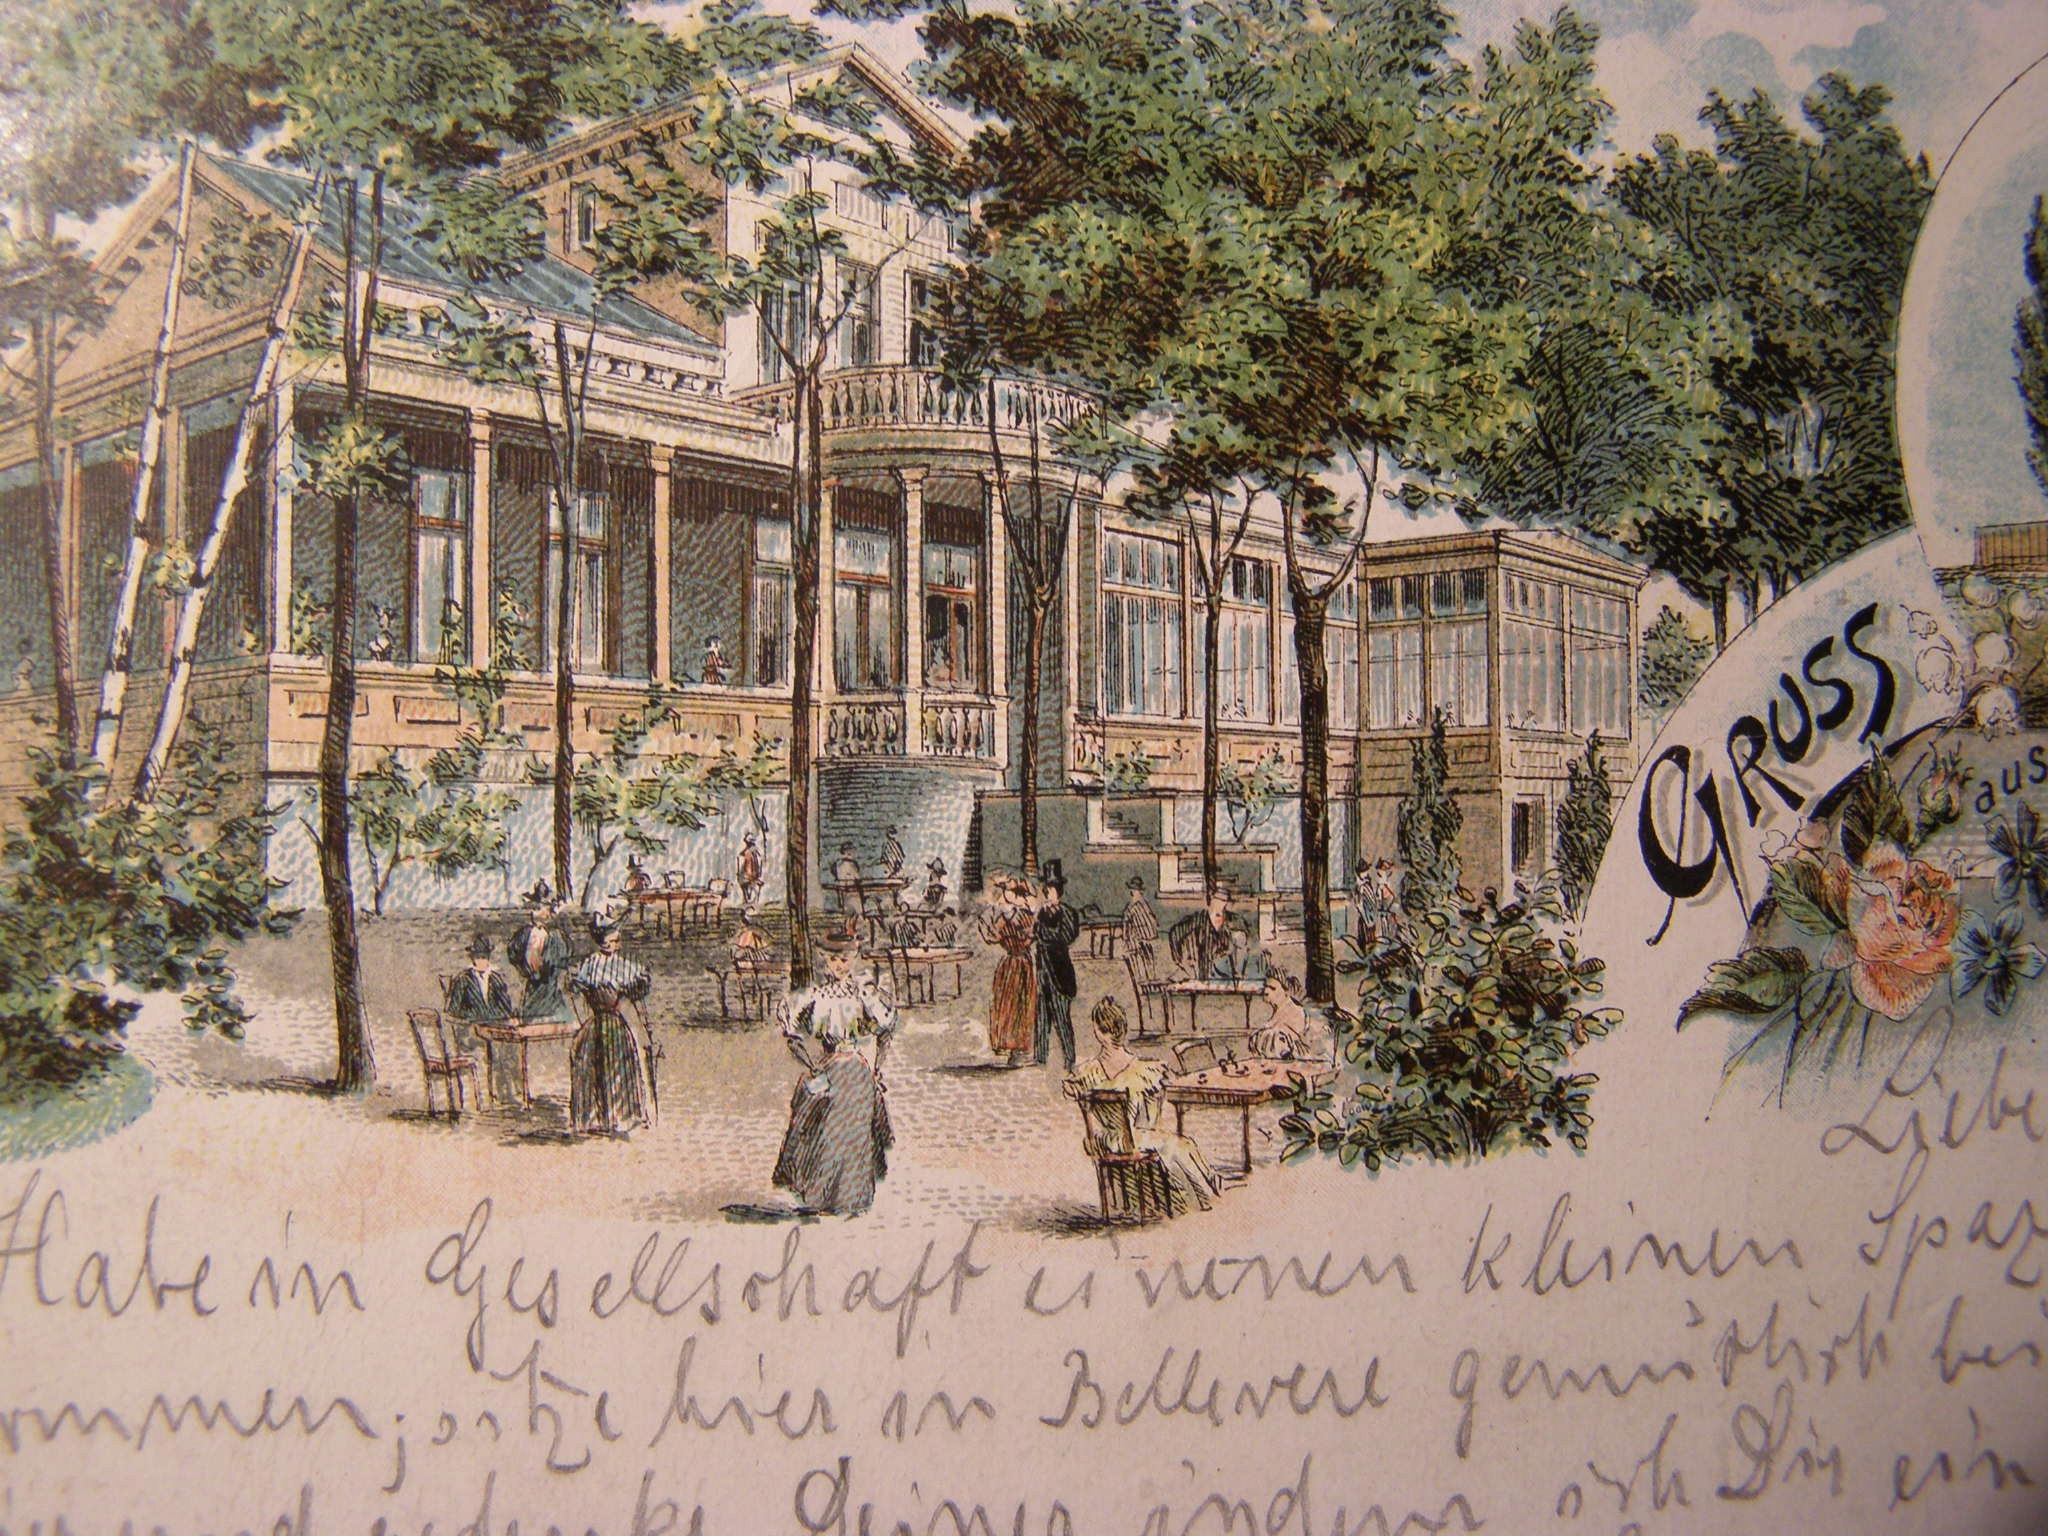 GRUSS
aus
Liebe
Habe in Gesellschaft einenen kleinen Spaz
ommen; sitze hier in Bellevere gemütlich bei
und gedenke Deiner indem ich Dir ein